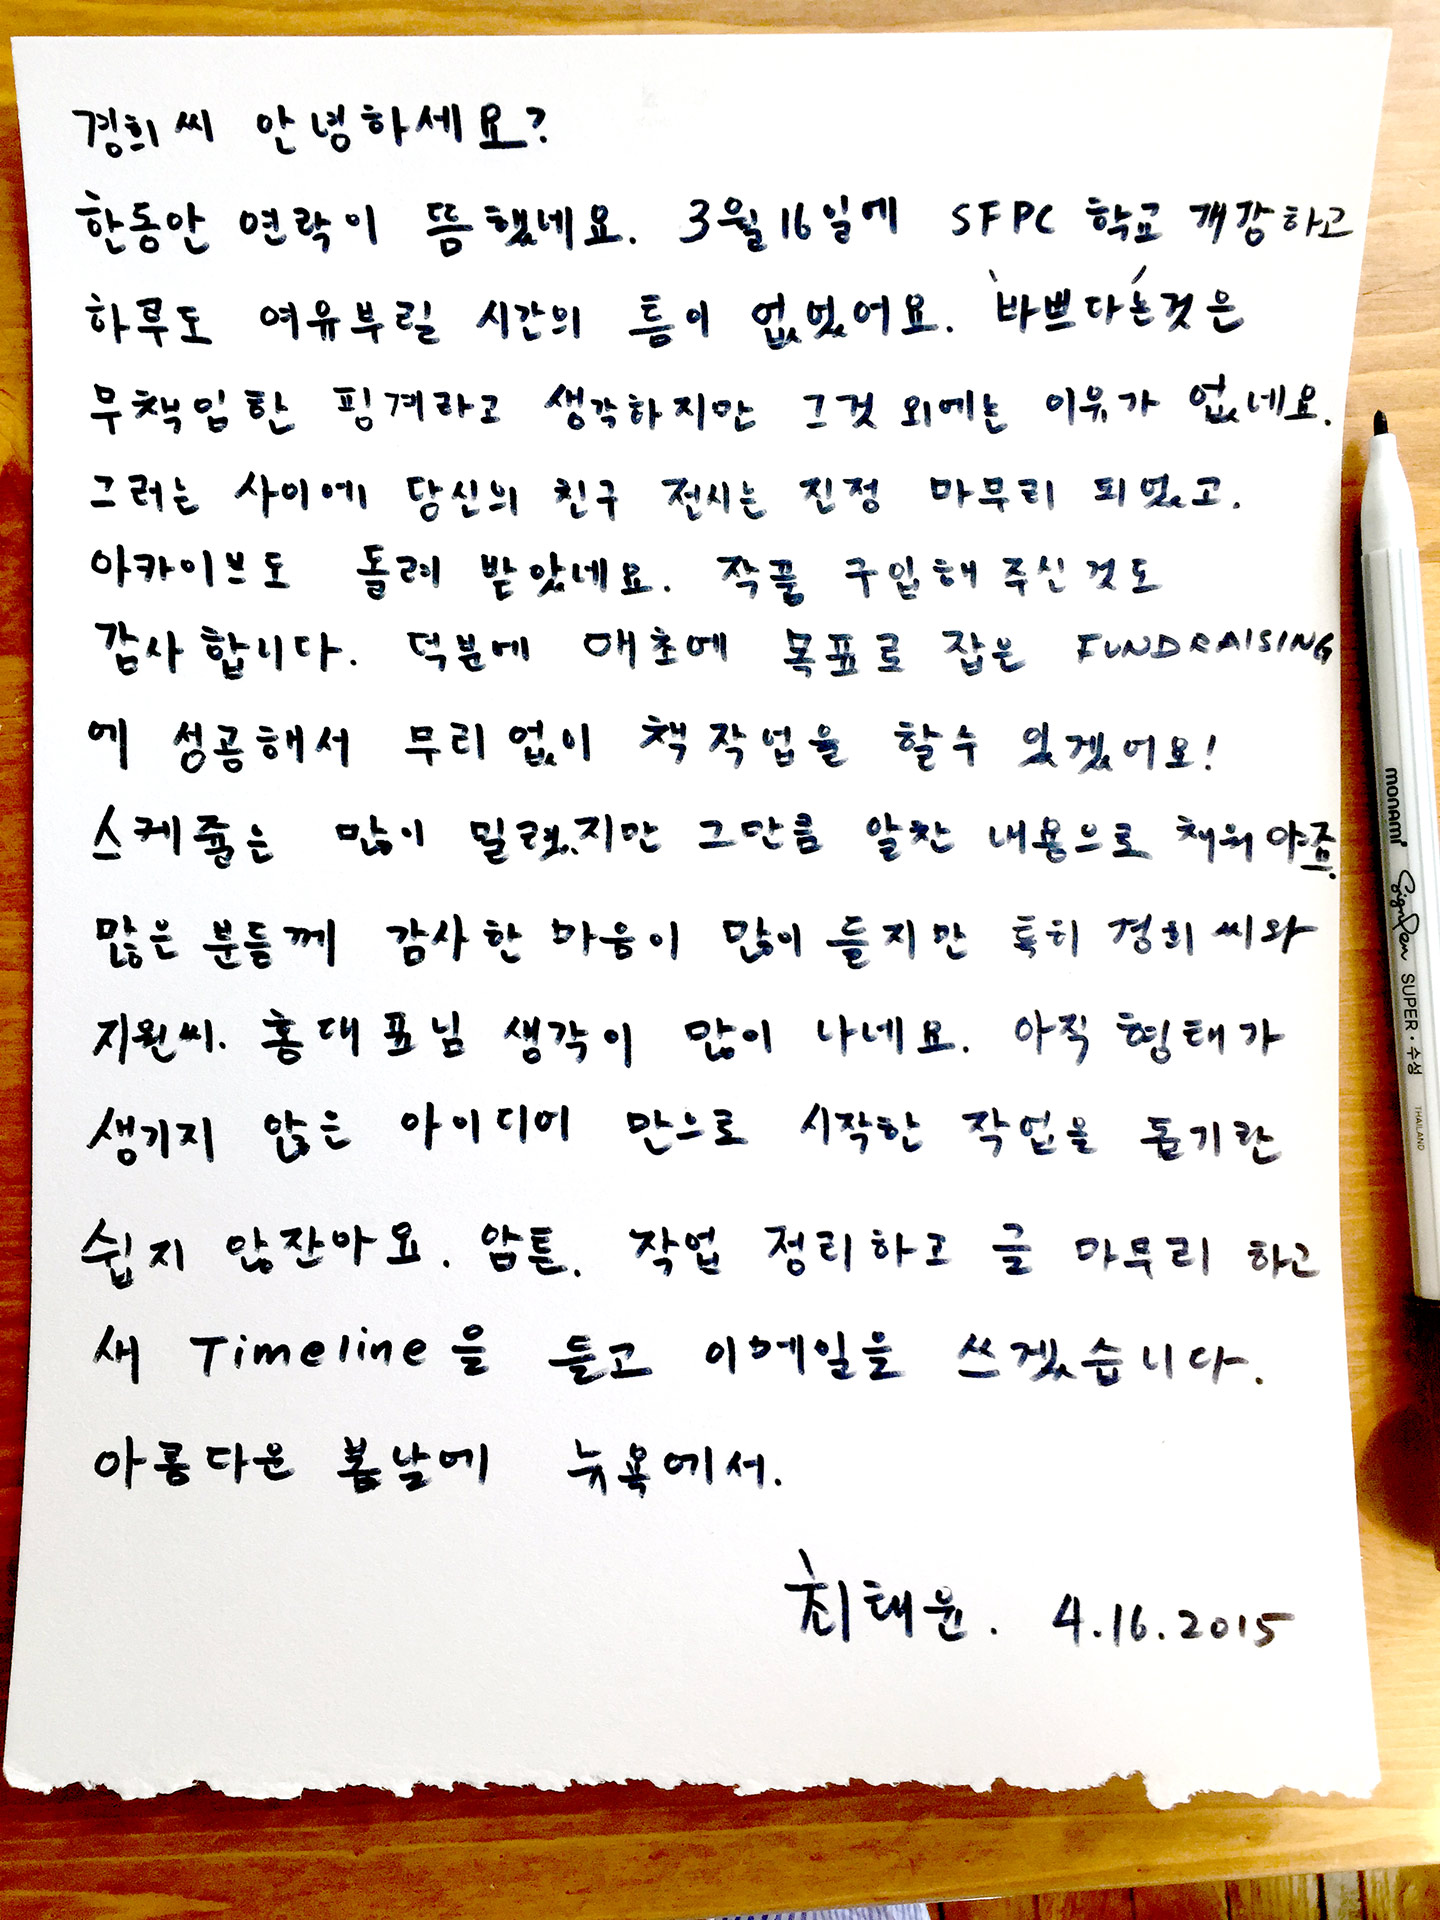 경희씨 안녕하세요?
한동안 연락이 뜸했네요. 3월16일에 SFPC 학교 개강하고
하루도 여유부릴 시간의 틈이 없었어요. '바쁘다'는것은
무책임한 핑계라고 생각하지만 그것 외에는 이유가 없네요.
그러는 사이에 당신의 친구 전시는 진정 마무리 되었고.
아카이브도 돌려 받았네요. 작품 구입해 주신것도
감사합니다. 덕분에 애초에 목표로 잡은 FUNDRAISING
에 성공해서 무리없이 책작업을 할수 있겠어요!
스케쥴은 많이 밀렸지만 그만큼 알찬 내용으로 채워야죠.
많은 분들께 감사한 마음이 많이 들지만 특히 경희씨와
지원씨. 홍대표님 생각이 많이 나네요. 아직 형태가
생기지 않은 아이디어 만으로 시작한 작업을 돕기란
쉽지 않잖아요. 암튼. 작업 정리하고 글 마무리 하고
새 Timeline을 들고 이메일을 쓰겠습니다.
아름다운 봄날에 뉴욕에서.
최태윤. 4.16.2015
monami SignPen SUPER·수성 THAILAND